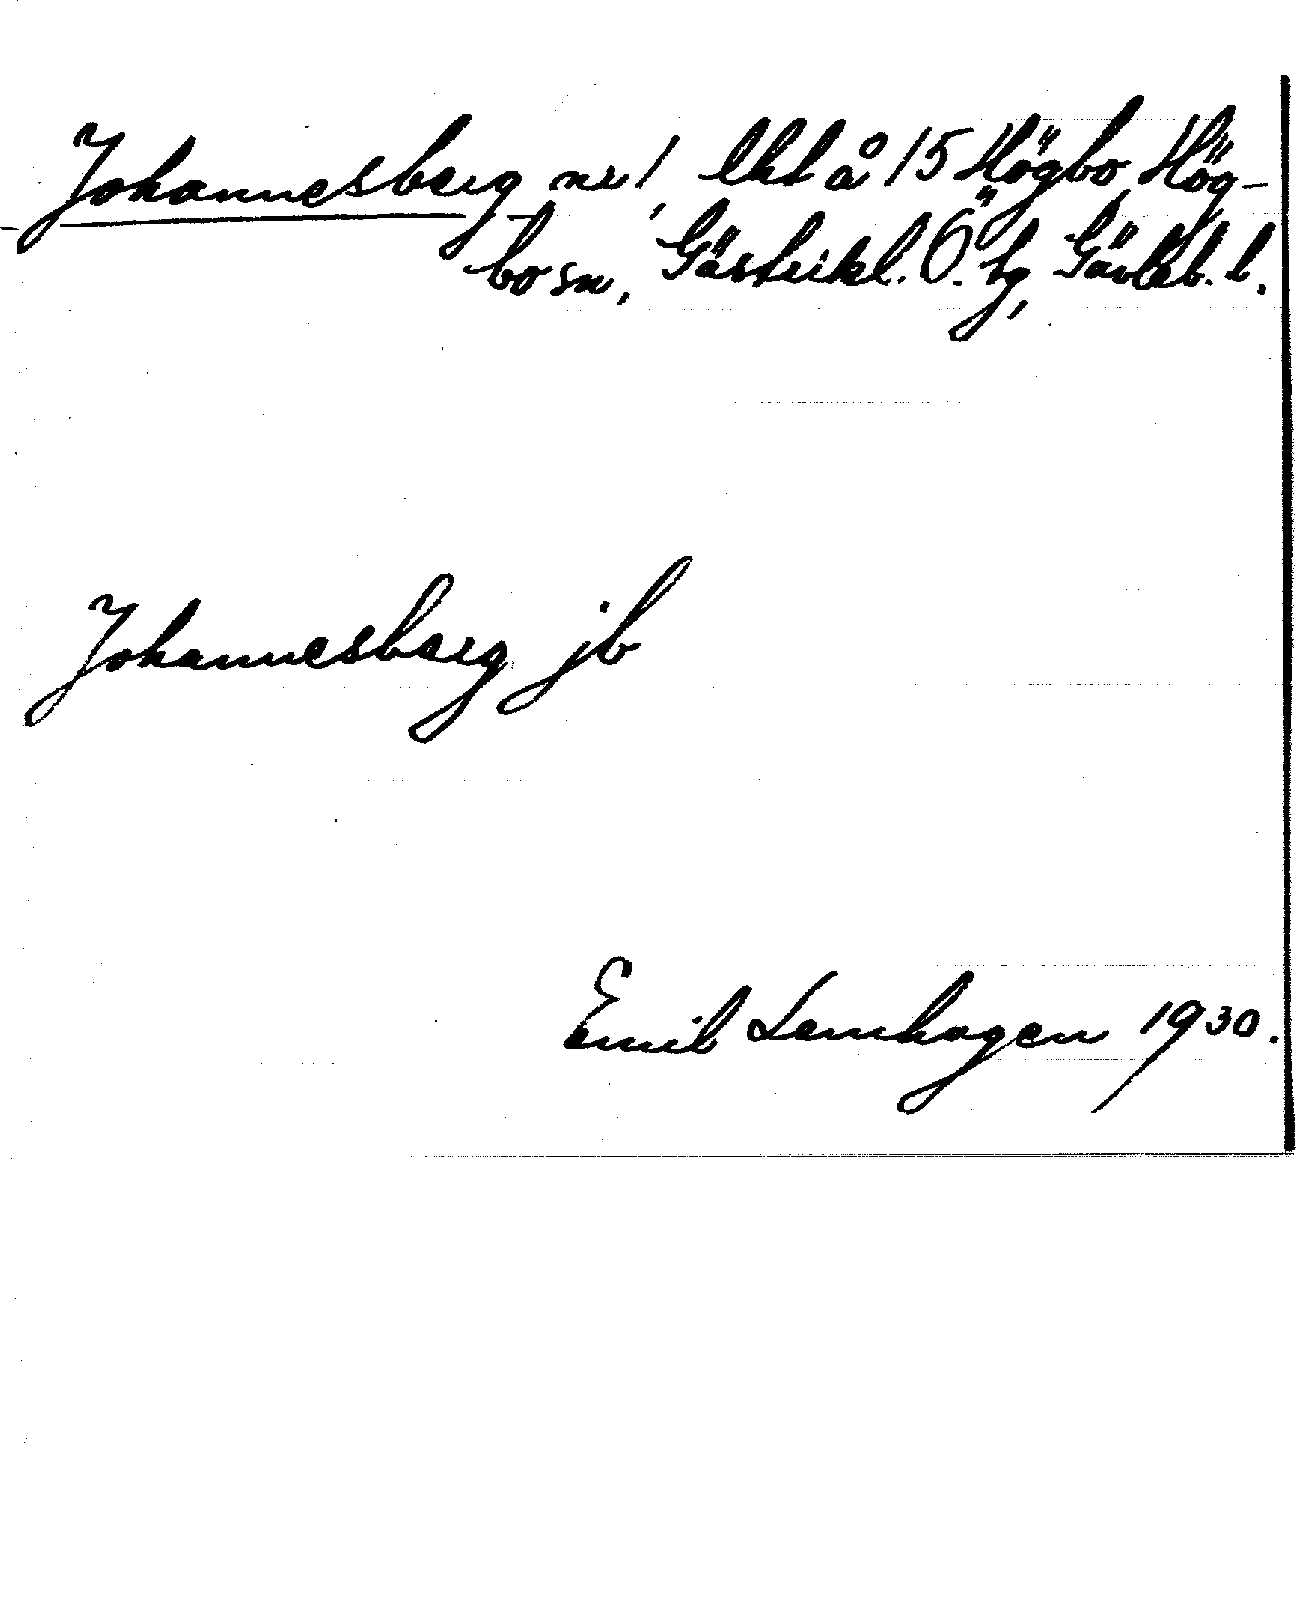 Johannesberg nr 1, lht å 15 Högbo, Hög-
bo sn, Gästrikl. Ö. tg, Gävleb. l.
Johannesberg jb
Emil Lenhagen 1930.